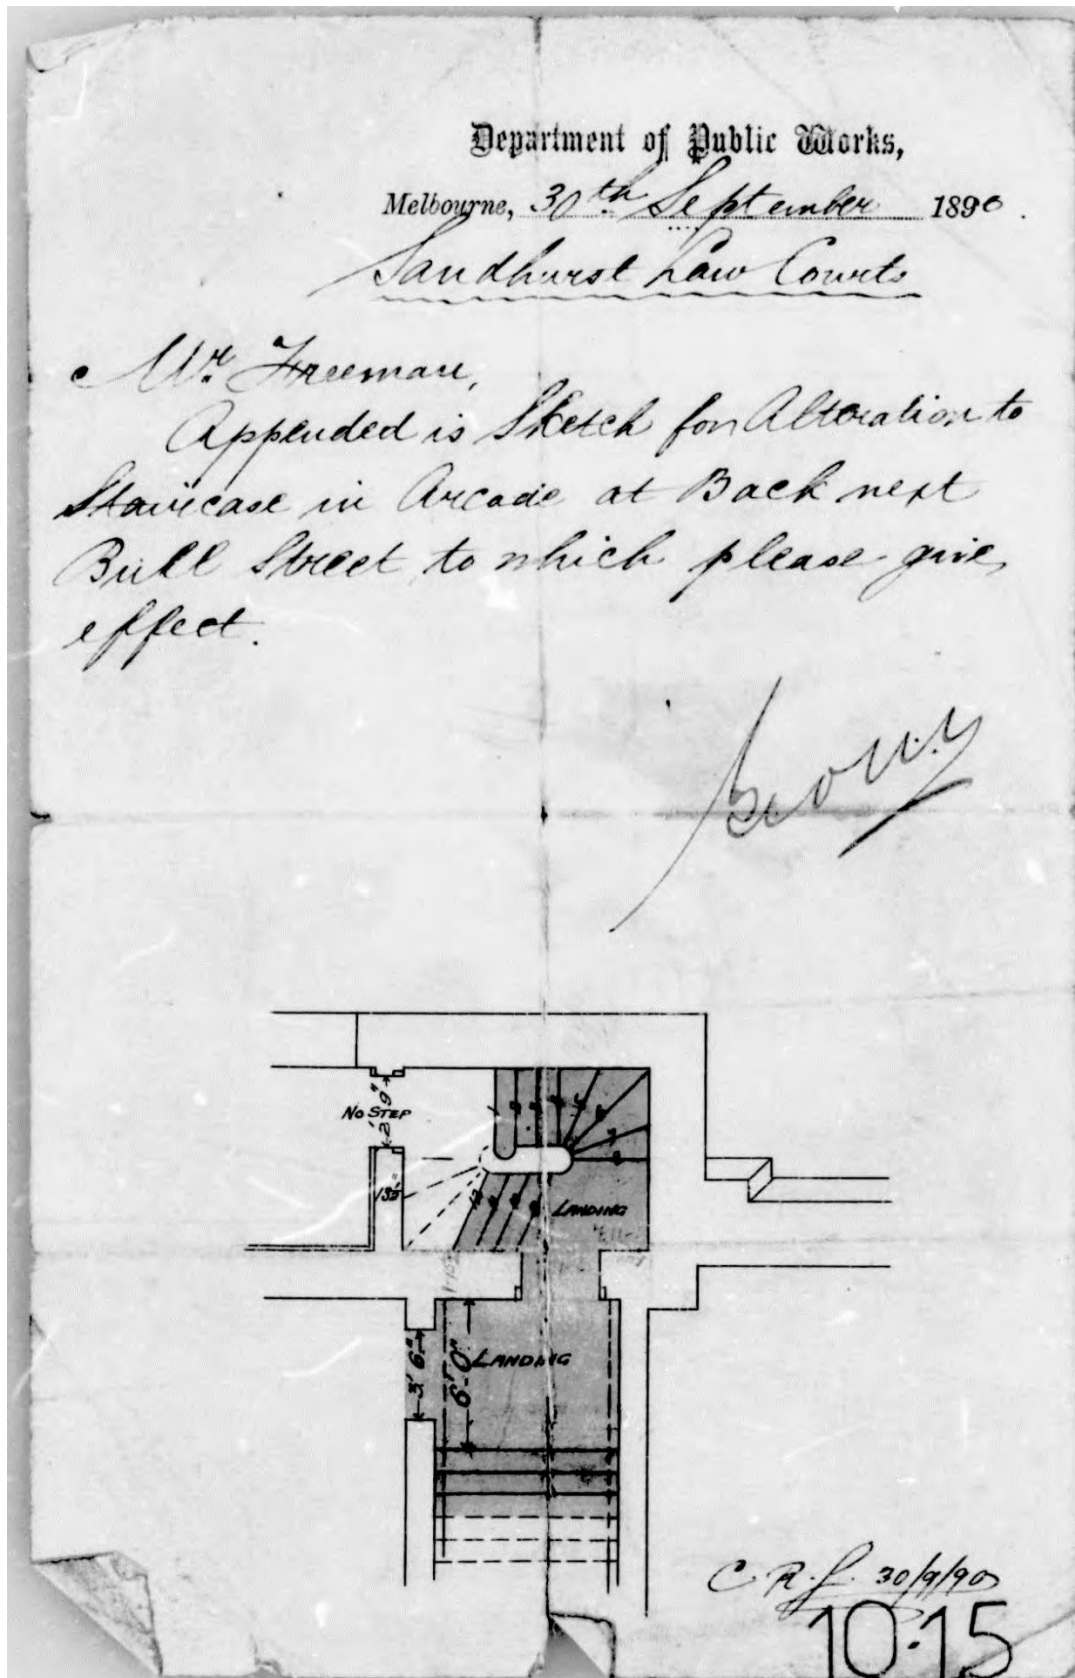 Department of Public Works,
Melbourne, 30th September 1890.
Sandhurst Law Courts
Mr. Freeman,
Appended is Sketch for Alteration to
Staircase in Arcade at Back next
Bull Street to which please give
effect.
No STEP
2' 9"
13½"
LANDING
LANDING
3' 6"
6'-0"
C. R. 30/9/90
10.15